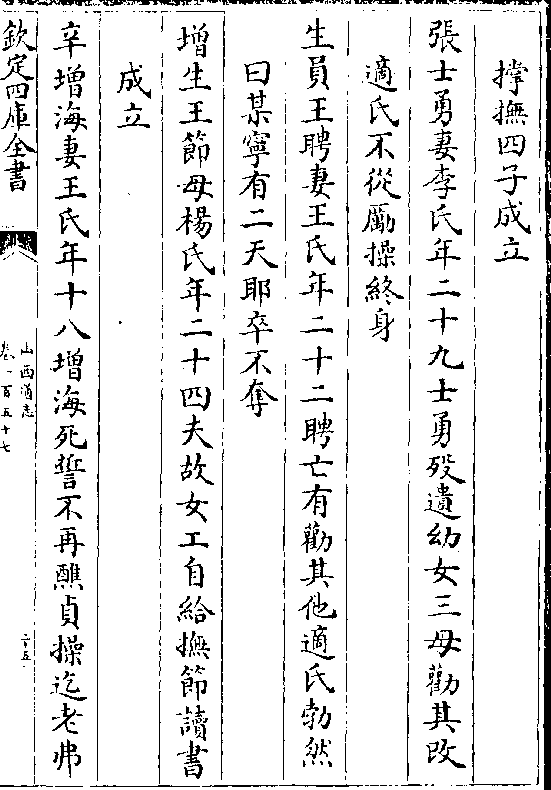 撑撫四子成立
張士勇妻李氏年二十九士勇殁遺幼女三母勸其改
適氏不從勵操終身
生員王聘妻王氏年二十二聘亡有勸其他適氏勃然
曰某寧有二天耶卒不奪
增生王節母楊氏年二十四夫故女工自給撫節讀書
成立
辛增海妻王氏年十八增海死誓不再醮貞操迄老弗
欽定四庫全書
山西通志
卷一百五十七
二十五